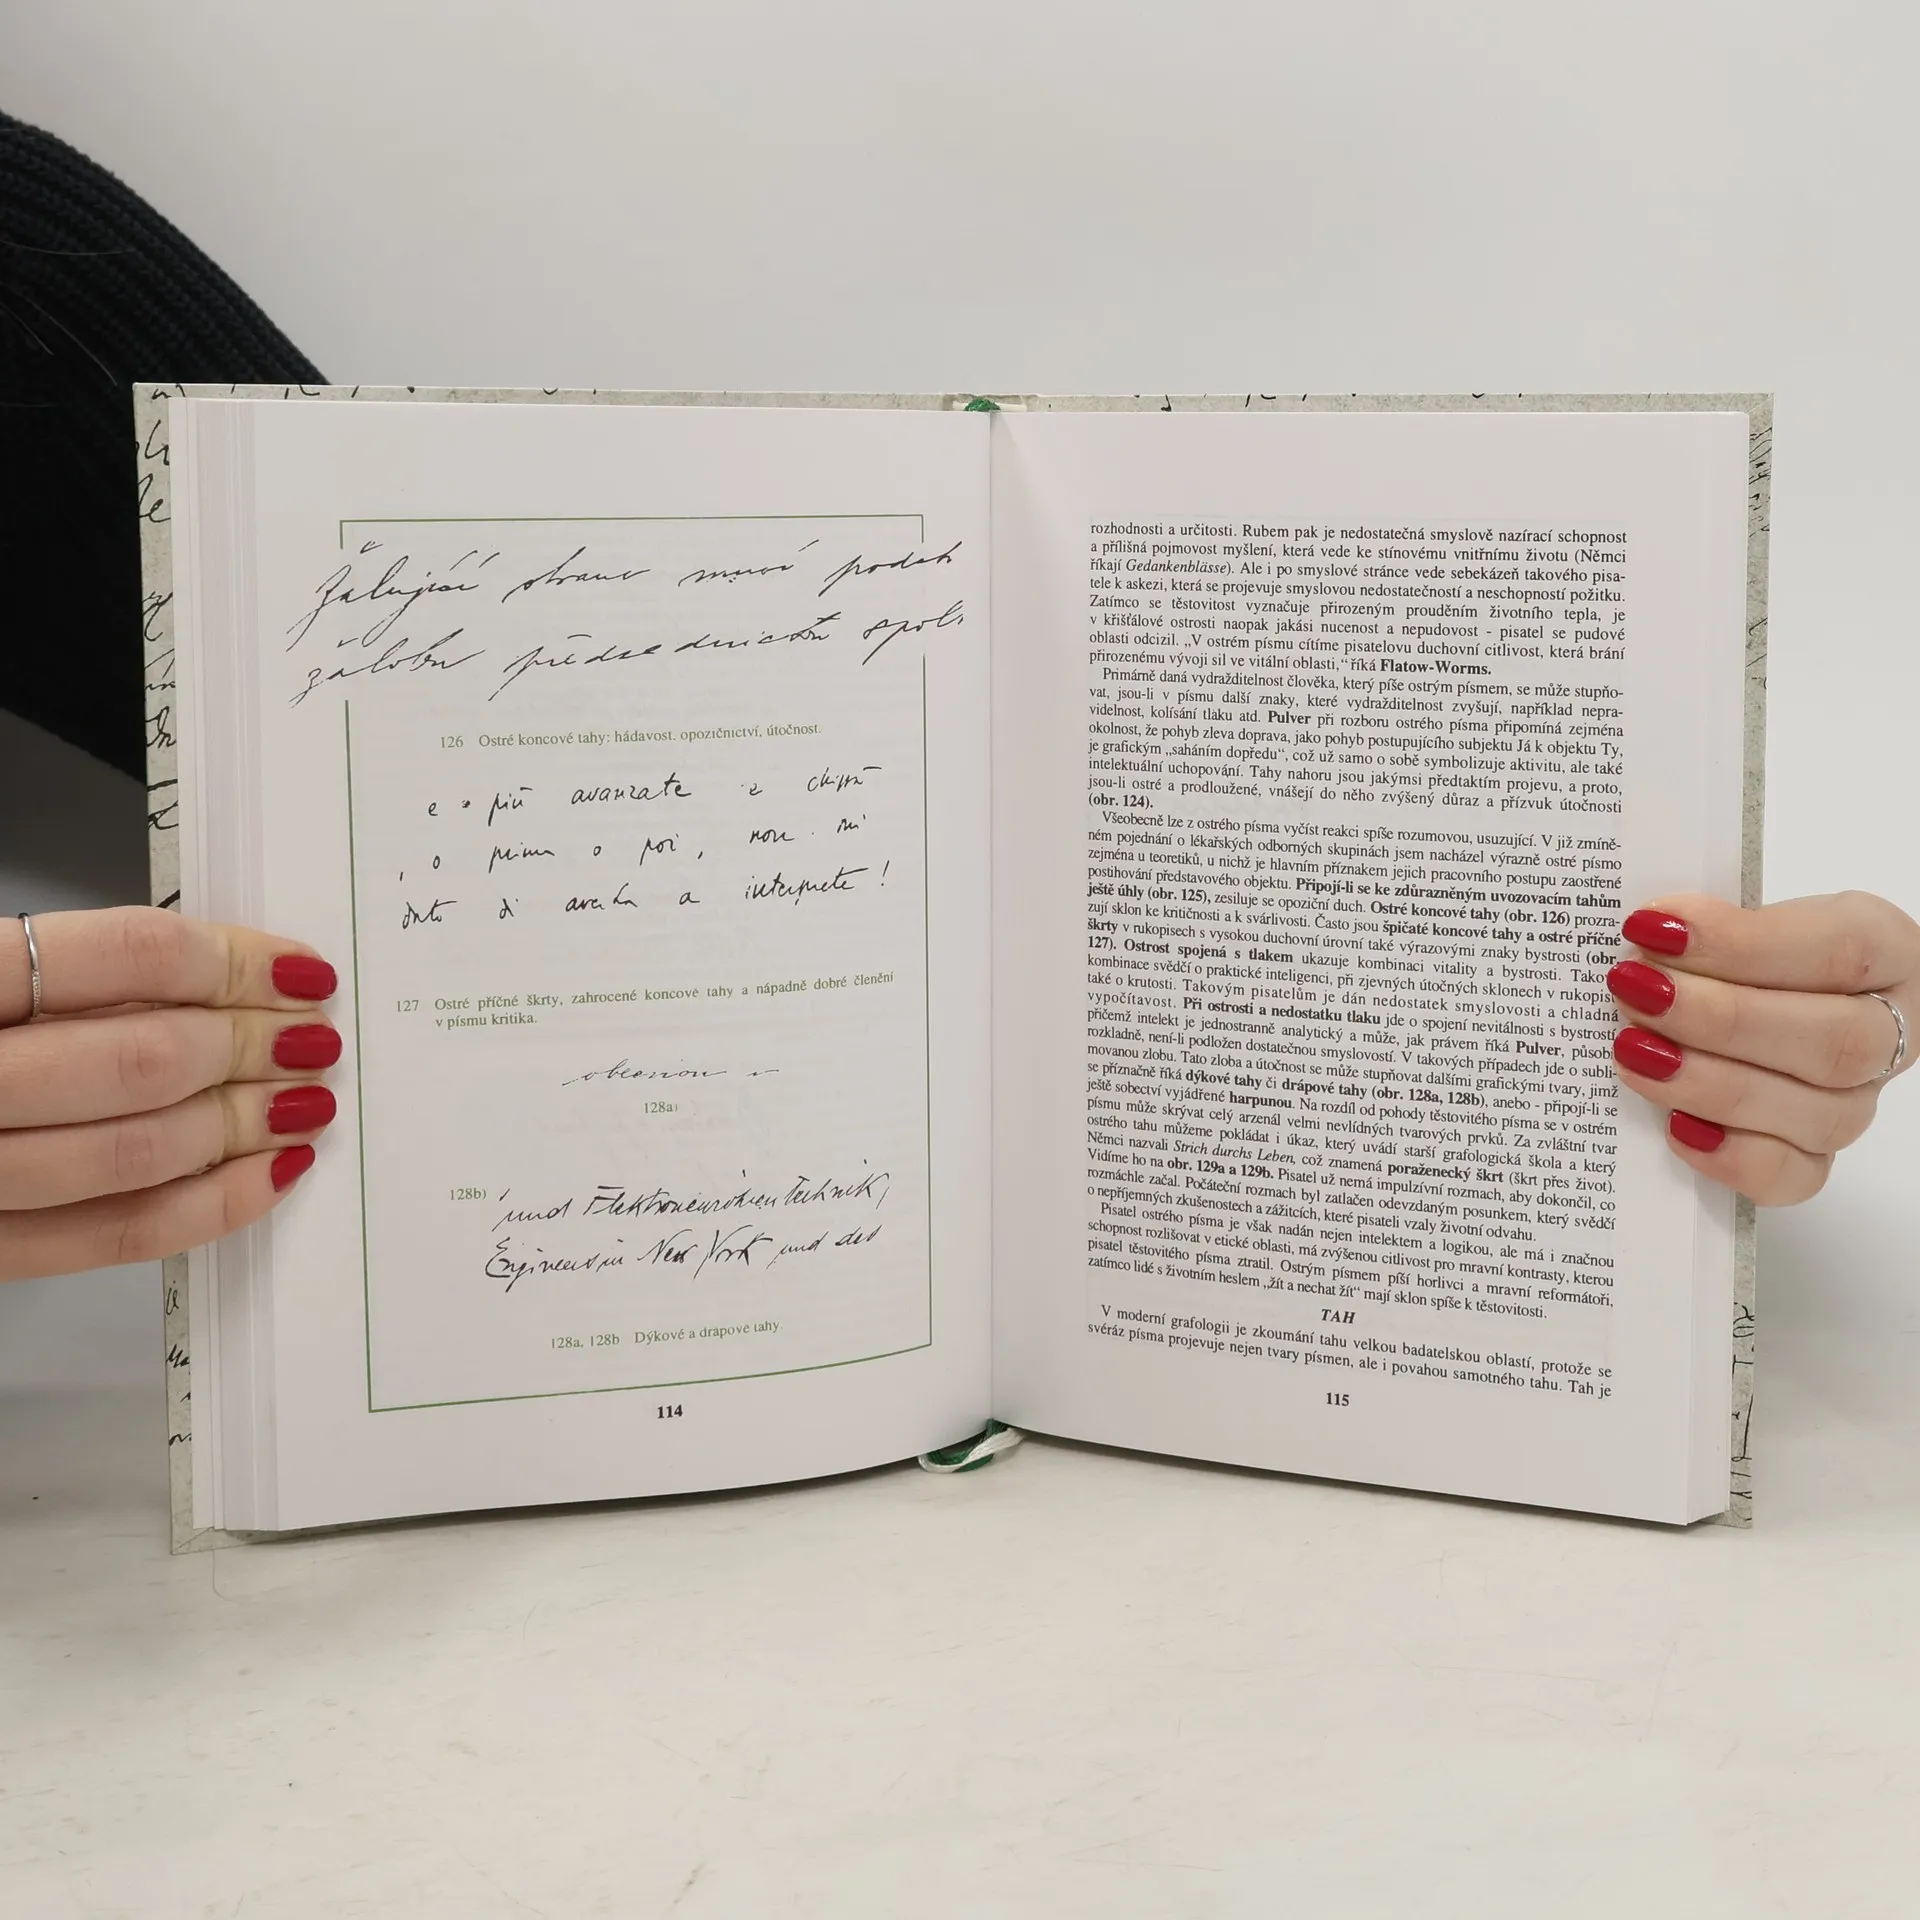 Žalující strana musí podat
žalobu předsednictvu spol.
126 Ostré koncové tahy: hádavost, opozičnictví, útočnost.
e più avanzate e
, o prima o poi, non mi
di a interprete!
127 Ostré příčné škrty, zahrocené koncové tahy a nápadně dobré členění
v písmu kritika.
128a)
128b)
und Elektroneurómentechnik,
Engineers in New York und des
128a, 128b Dýkové a drápové tahy.
114
rozhodnosti a určitosti. Rubem pak je nedostatečná smyslově nazírací schopnost
a přílišná pojmovost myšlení, která vede ke stínovému vnitřnímu životu (Němci
říkají Gedankenblässe). Ale i po smyslové stránce vede sebekázeň takového pisa-
tele k askezi, která se projevuje smyslovou nedostatečností a neschopností požitku.
Zatímco se těstovitost vyznačuje přirozeným prouděním životního tepla, je
v křišťálové ostrosti naopak jakási nucenost a nepudovost - pisatel se pudové
oblasti odcizil. „V ostrém písmu cítíme pisatelovu duchovní citlivost, která brání
přirozenému vývoji sil ve vitální oblasti,“ říká Flatow-Worms.
Primárně daná vydrážditelnost člověka, který píše ostrým písmem, se může stupňo-
vat, jsou-li v písmu další znaky, které vydrážditelnost zvyšují, například nepra-
videlnost, kolísání tlaku atd. Pulver při rozboru ostrého písma připomíná zejména
okolnost, že pohyb zleva doprava, jako pohyb postupujícího subjektu Já k objektu Ty,
je grafickým „saháním dopředu“, což už samo o sobě symbolizuje aktivitu, ale také
intelektuální uchopování. Tahy nahoru jsou jakýmsi předtaktím projevu, a proto,
jsou-li ostré a prodloužené, vnášejí do něho zvýšený důraz a přízvuk útočnosti
(obr. 124).
Všeobecně lze z ostrého písma vyčíst reakci spíše rozumovou, usuzující. V již zmíně-
ném pojednání o lékařských odborných skupinách jsem nacházel výrazně ostré písmo
zejména u teoretiků, u nichž je hlavním příznakem jejich pracovního postupu zaostřené
postihování představového objektu. Připojí-li se ke zdůrazněným uvozovacím tahům
ještě úhly (obr. 125), zesiluje se opoziční duch. Ostré koncové tahy (obr. 126) prozra-
zují sklon ke kritičnosti a k svárlivosti. Často jsou špičaté koncové tahy a ostré příčné
škrty v rukopisech s vysokou duchovní úrovní také výrazovými znaky bystrosti (obr.
127). Ostrost spojená s tlakem ukazuje kombinaci vitality a bystrosti. Takov
kombinace svědčí o praktické inteligenci, při zjevných útočných sklonech v rukopise
také o krutosti. Takovým pisatelům je dán nedostatek smyslovosti a chladná
vypočítavost. Při ostrosti a nedostatku tlaku jde o spojení nevitálnosti s bystrostí,
přičemž intelekt je jednostranně analytický a může, jak právem říká Pulver, působi
rozkladně, není-li podložen dostatečnou smyslovostí. V takových případech jde o subli-
movanou zlobu. Tato zloba a útočnost se může stupňovat dalšími grafickými tvary, jimž
se příznačně říká dýkové tahy či drápové tahy (obr. 128a, 128b), anebo - připojí-li se
ještě sobectví vyjádřené harpunou. Na rozdíl od pohody těstovitého písma se v ostrém
písmu může skrývat celý arzenál velmi nevlídných tvarových prvků. Za zvláštní tvar
ostrého tahu můžeme pokládat i úkaz, který uvádí starší grafologická škola a který
Němci nazvali Strich durchs Leben, což znamená poraženecký škrt (škrt přes život).
Vidíme ho na obr. 129a a 129b. Pisatel už nemá impulzívní rozmach, aby dokončil, co
rozmáchle začal. Počáteční rozmach byl zatlačen odevzdaným posunkem, který svědčí
o nepříjemných zkušenostech a zážitcích, které pisateli vzaly životní odvahu.
Pisatel ostrého písma je však nadán nejen intelektem a logikou, ale má i značnou
schopnost rozlišovat v etické oblasti, má zvýšenou citlivost pro mravní kontrasty, kterou
pisatel těstovitého písma ztratil. Ostrým písmem píší horlivci a mravní reformátoři,
zatímco lidé s životním heslem „žít a nechat žít“ mají sklon spíše k těstovitosti.
TAH
V moderní grafologii je zkoumání tahu velkou badatelskou oblastí, protože se
svéráz písma projevuje nejen tvary písmen, ale i povahou samotného tahu. Tah je
115